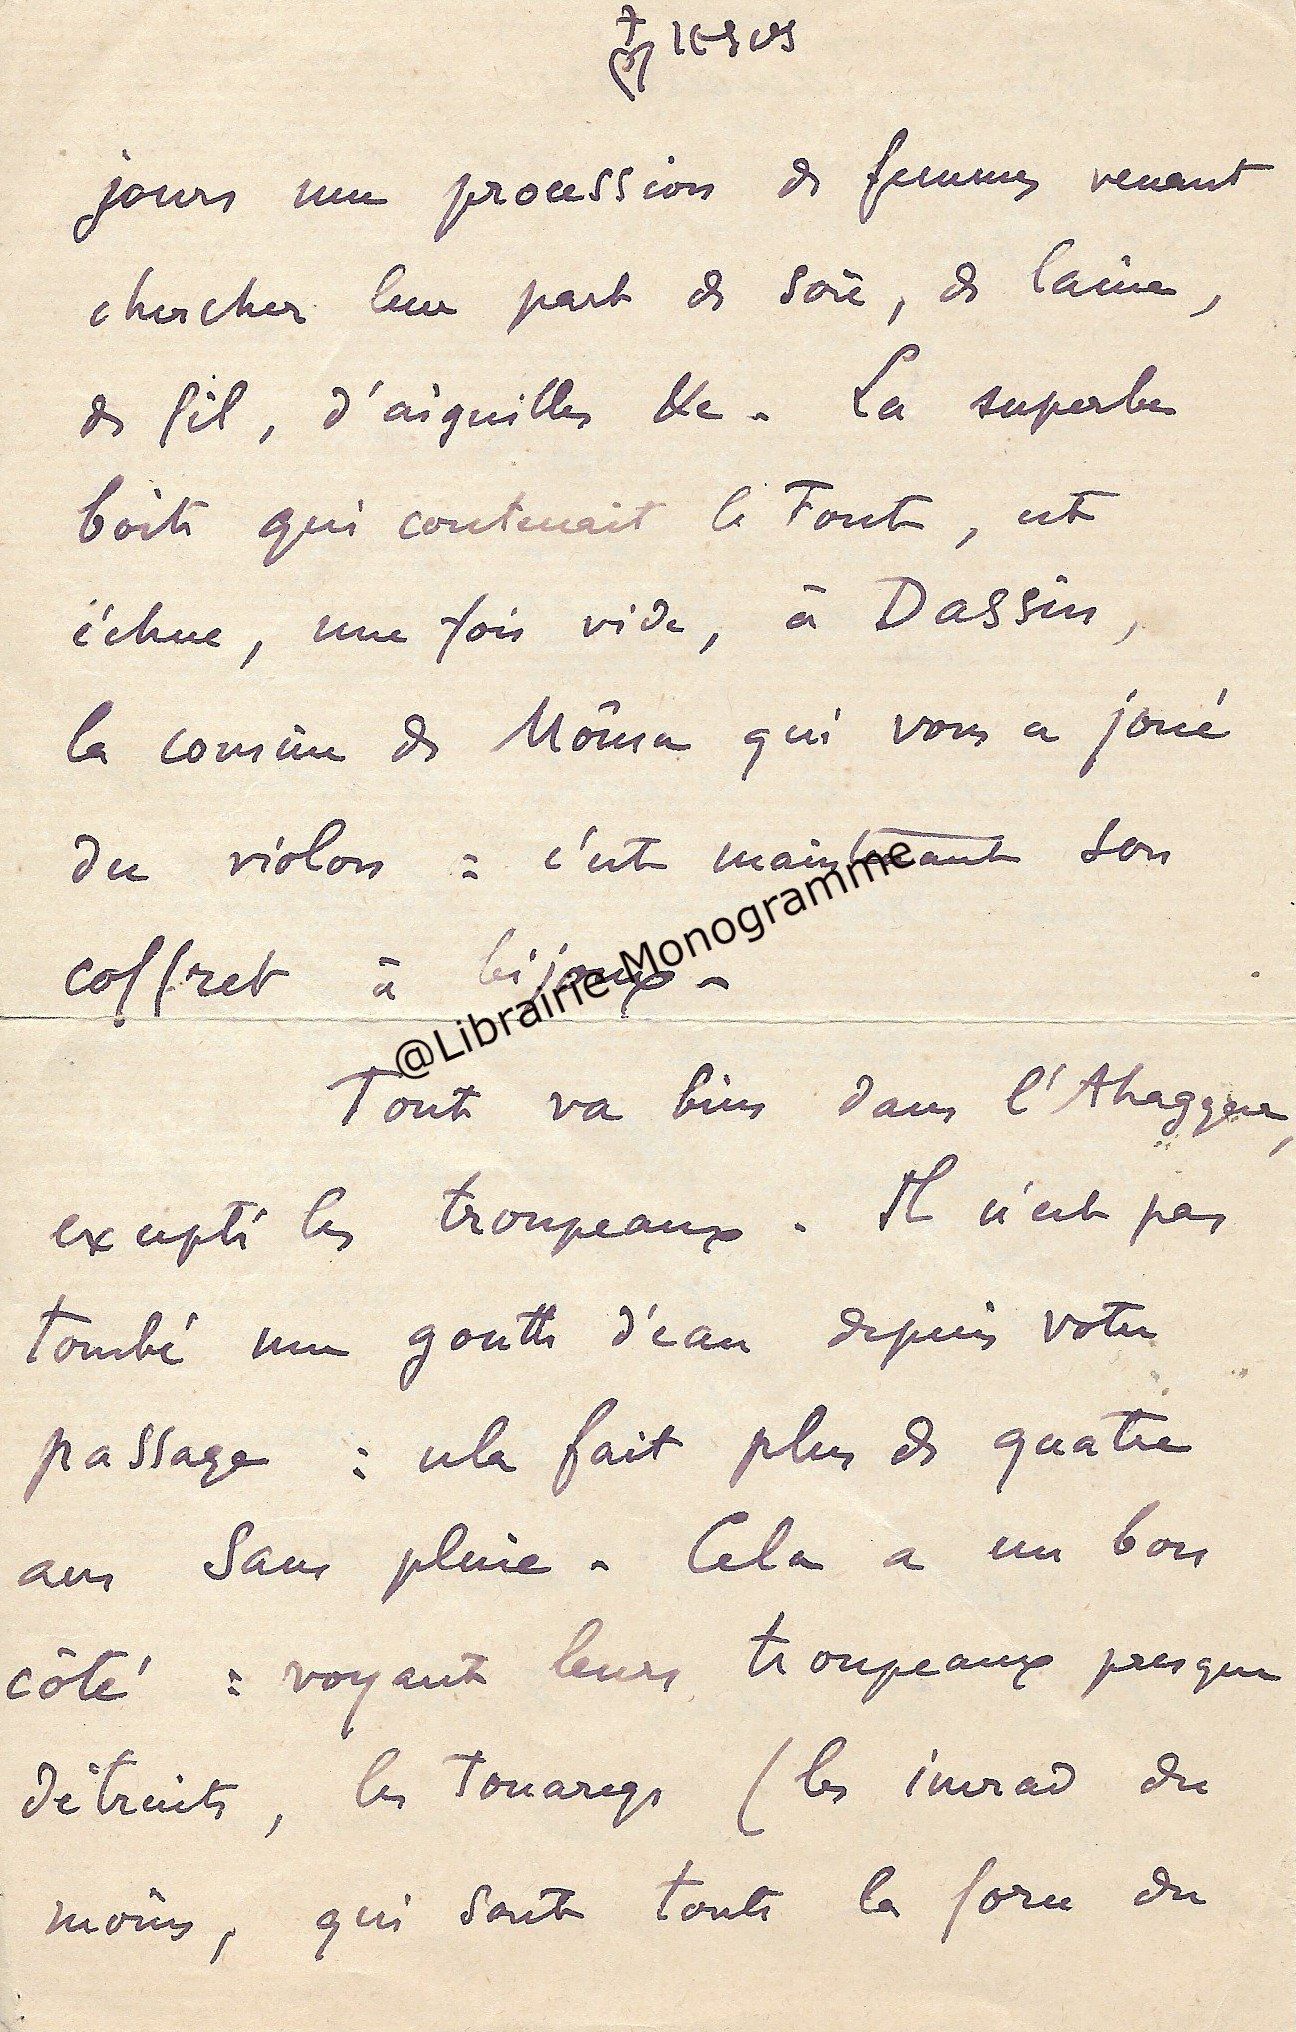 IESUS
jours une procession de femmes venant
chercher leur part de soie, de laine,
de fil, d'aiguilles &c. La superbe
boîte qui contenait le Tout, est
échue, une fois vide, à Dassin,
la cousine de Moûsa qui vous a joué
du violon : c'est maintenant son
coffret à bijoux.
@Librairie Monogramme
Tout va bien dans l'Ahaggar,
excepté les troupeaux. Il n'est pas
tombé une goutte d'eau depuis votre
passage : cela fait plus de quatre
ans sans pluie. Cela a un bon
côté : voyant leurs troupeaux presque
détruits, les Touaregs (les imrad du
moins, qui sont toute la force du